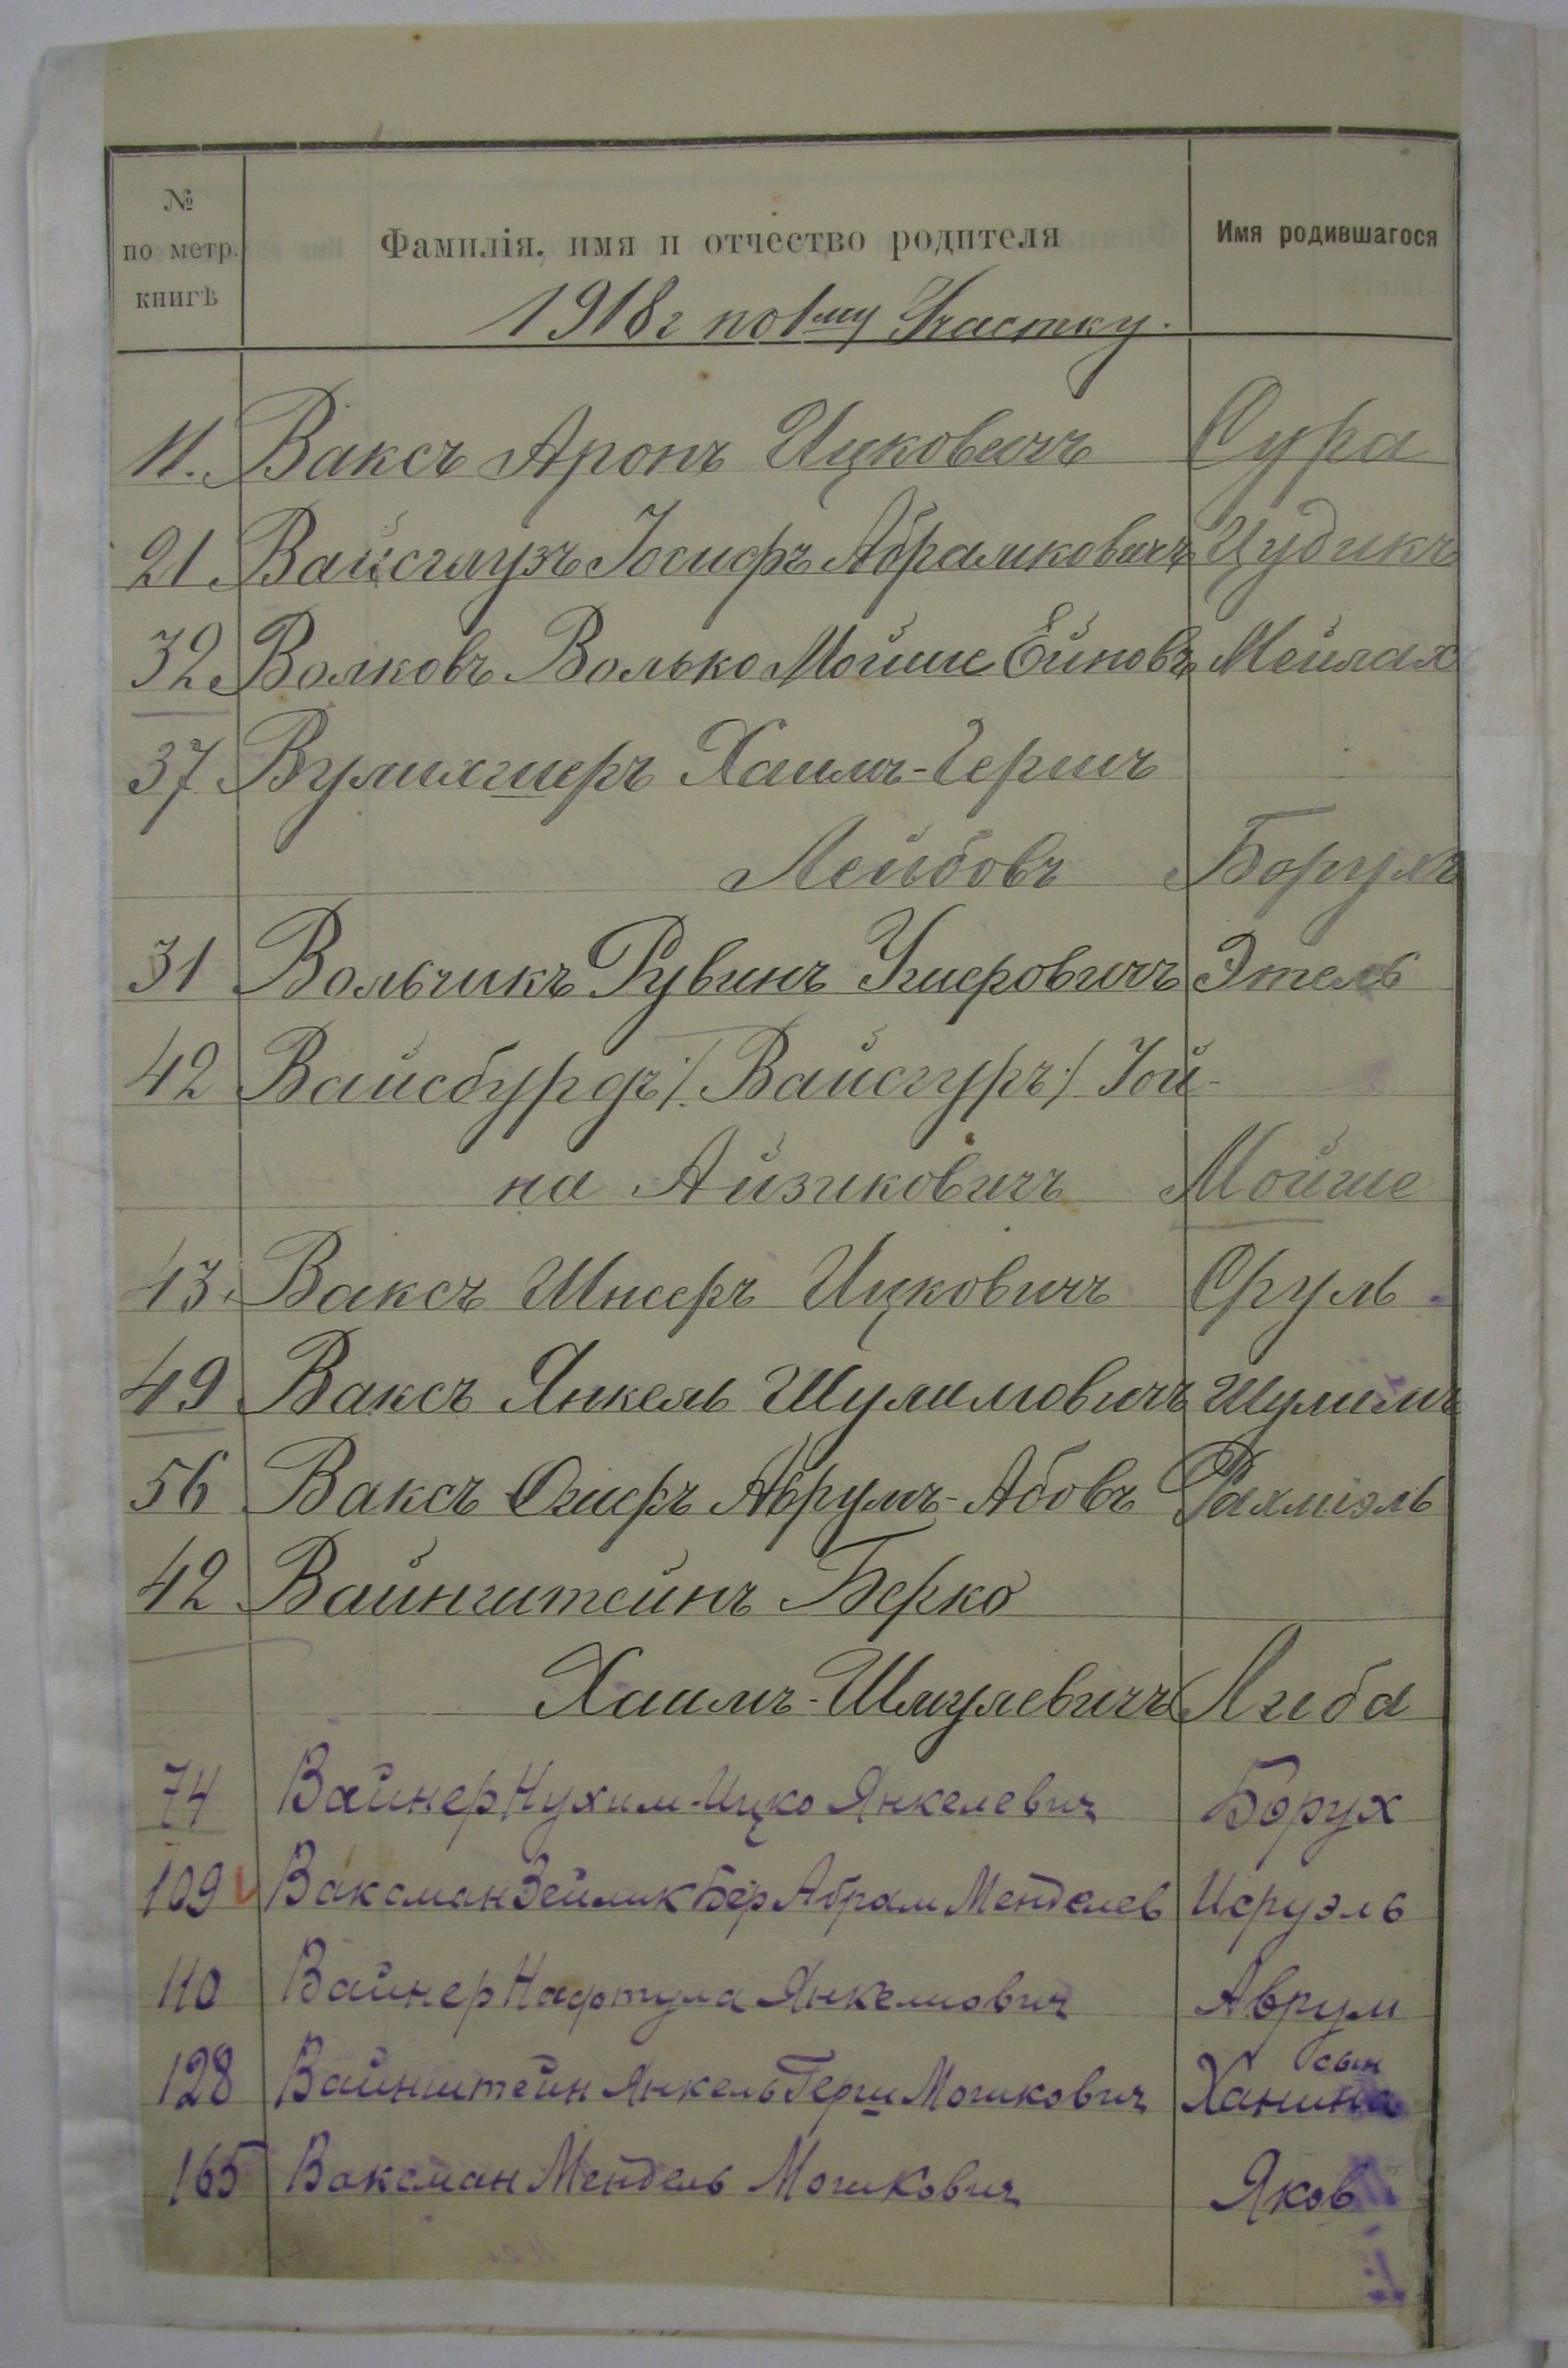 № по метр. книгѣ Фамилія, имя и отчество родителя Имя родившагося
1918 г по 1му Участку.
11. Ваксъ Аронъ Ицковичъ Сура
21 Вайсглузъ Іосифъ Абрамковичъ Цудикъ
32 Волковъ Волько Мойше Ейновъ Мейлах
37 Вулихшеръ Хаимъ-Гершъ
Лейбовъ Борухъ
31 Вольчикъ Рувинъ Ушеровичъ Этель
42 Вайсбурдъ /Вайсгуръ/ Іой-
на Айзиковичъ Мойше
43. Ваксъ Шнееръ Ицковичъ Сруль
49 Ваксъ Янкель Шулимовичъ Шулимъ
56 Ваксъ Ошеръ Аврумъ-Абовъ Рахміэль
42 Вайнштейнъ Берко
Хаимъ-Шмулевичъ Либа
74 Вайнер Нухим-Ицко Янкелевич Борух
109 Ваксман Зейлик Бер Абрам Менделев Исруэль
110 Вайнер Нафтула Янкелиович Аврум
128 Вайнштейн Янкель Герш Мошкович Ханина сын
165 Ваксман Мендель Мошкович Яков